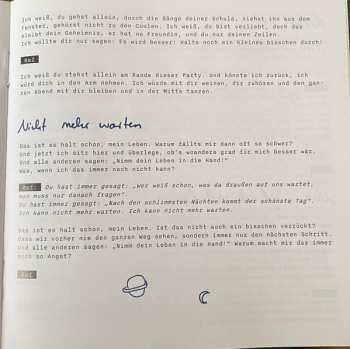 Ich weiß, du gehst allein, durch die Gänge deiner Schule, siehst ihn aus dem
Fenster, gehörst nicht zu den Coolen. Ich weiß, du bist verliebt, doch das
bleibt dein Geheimnis, er hat ne Freundin, und du nur deinen Zeilen.
Ich wollte dir nur sagen: Es wird besser! Halte noch ein kleines bisschen durch!
Ref
Ich weiß du stehst allein am Rande dieser Party. Und könnte ich zurück, ich
würd dich in den Arm nehmen. Ich würde mit dir weinen, dir zuhören und den gan-
zen Abend mit dir bleiben und in der Mitte tanzen.
Nicht mehr warten
Das ist es halt schon, mein Leben. Warum fällts mir dann oft so schwer?
Und jetzt ich sitz hier und überlege, ob's woanders grad für mich besser wär.
Und alle anderen sagen: „Nimm dein Leben in die Hand!"
Was, wenn ich das immer noch nicht kann?
Ref: Du hast immer gesagt: „Wer weiß schon, was da draußen auf uns wartet,
man muss nur danach fragen".
Du hast immer gesagt: „Nach den schlimmsten Nächten kommt der schönste Tag".
Ich kann nicht mehr warten. Ich kann nicht mehr warten.
Das ist es halt schon, mein Leben. Ist das nicht auch ein bisschen verrückt?
Dass wir vorher nie den ganzen Weg sehen, sondern immer nur den nächsten Schritt.
Und alle anderen sagen: „Nimm dein Leben in die Hand!" Warum macht mir das immer
noch so Angst?
Ref